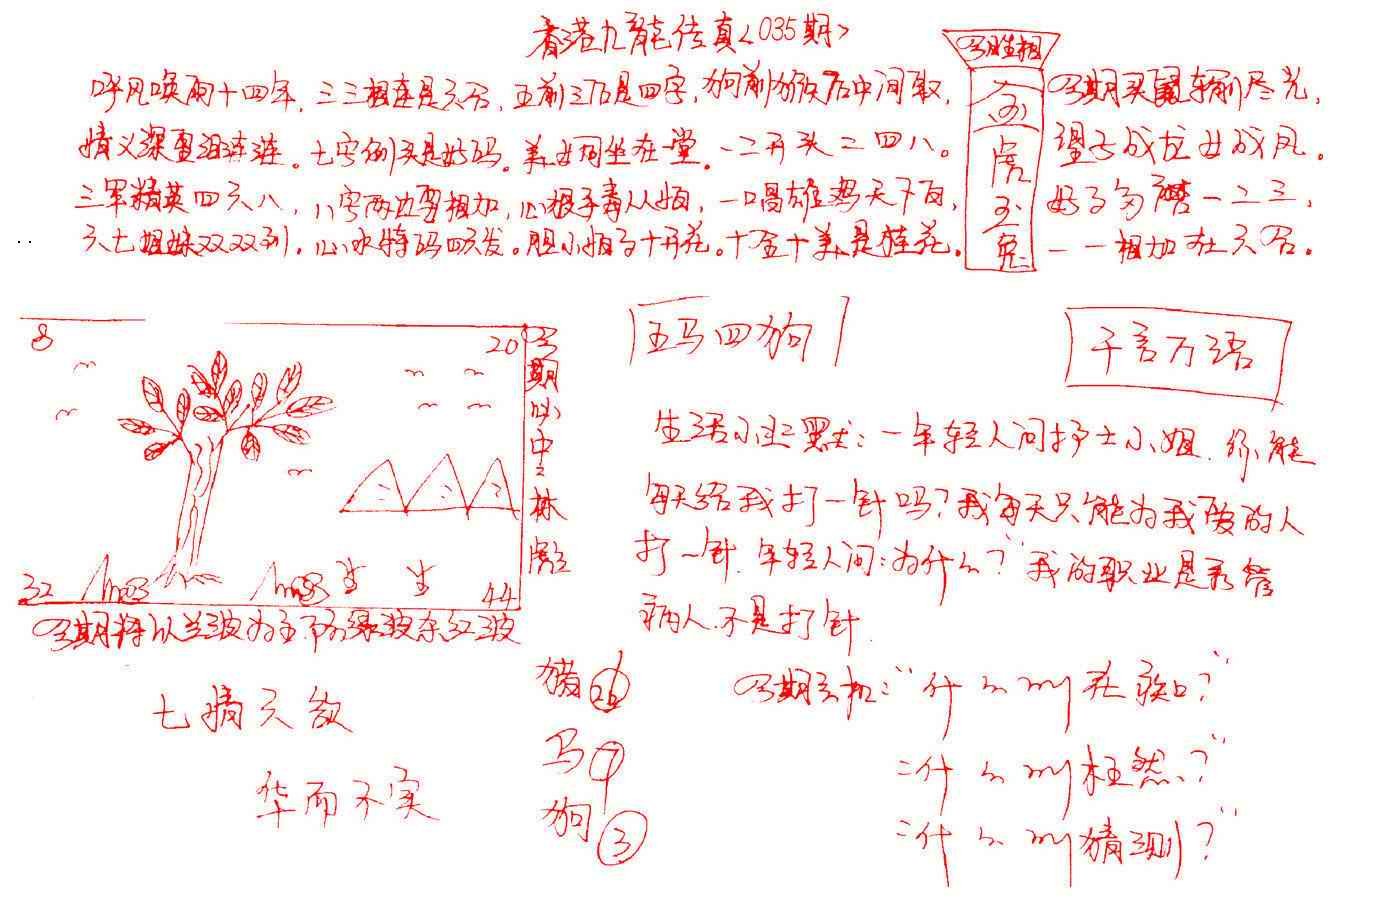 香港九龙传真<035期>
今期生相
呼风唤雨十四年，三三相连是六合，五前三后是四字，狗前猴后中间取，
今期买鼠输尽光，
情义深重泪涟涟。七字例头是好码。美女同坐在堂。一二开头二四八。
望子成龙女成凤。
三军精英四六八，八字两边要相加，心狠手毒人人怕，一唱雄鸡天下白，
好事多磨一二三，
六七姐妹双双到，心水特码四六发。胆小怕事十开花。十全十美是桂花。
一一相加在六合。
虎
玉
兔
8
20
32
44
今期必中
林
五马四狗
千言万语
生活小幽默：一年轻人问护士小姐，你能
每天给我打一针吗？我每天只能为我爱的人
打一针，年轻人问：为什么？我的职业是看管
病人，不是打针.
今期将以兰波为主下防绿波杂红波
七情六欲
华而不实
猪
马 7
狗 3
今期玄机："什
枉然？"
猜测？"